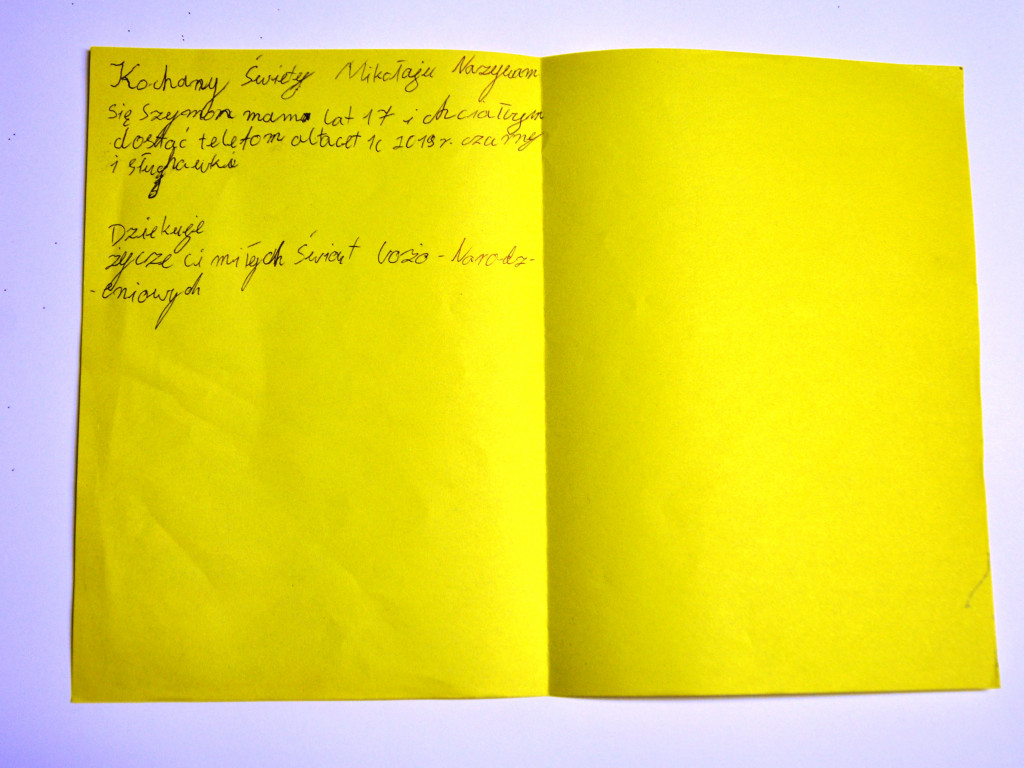 Kochany Święty Mikołaju Nazywam
się Szymon mam lat 17 i chciałbym
dostać telefom altacet 1c 2019r. czarny
i słuchawki
Dziękuje
życze ci miłych Świąt bożo-Narodz-
-eniowych